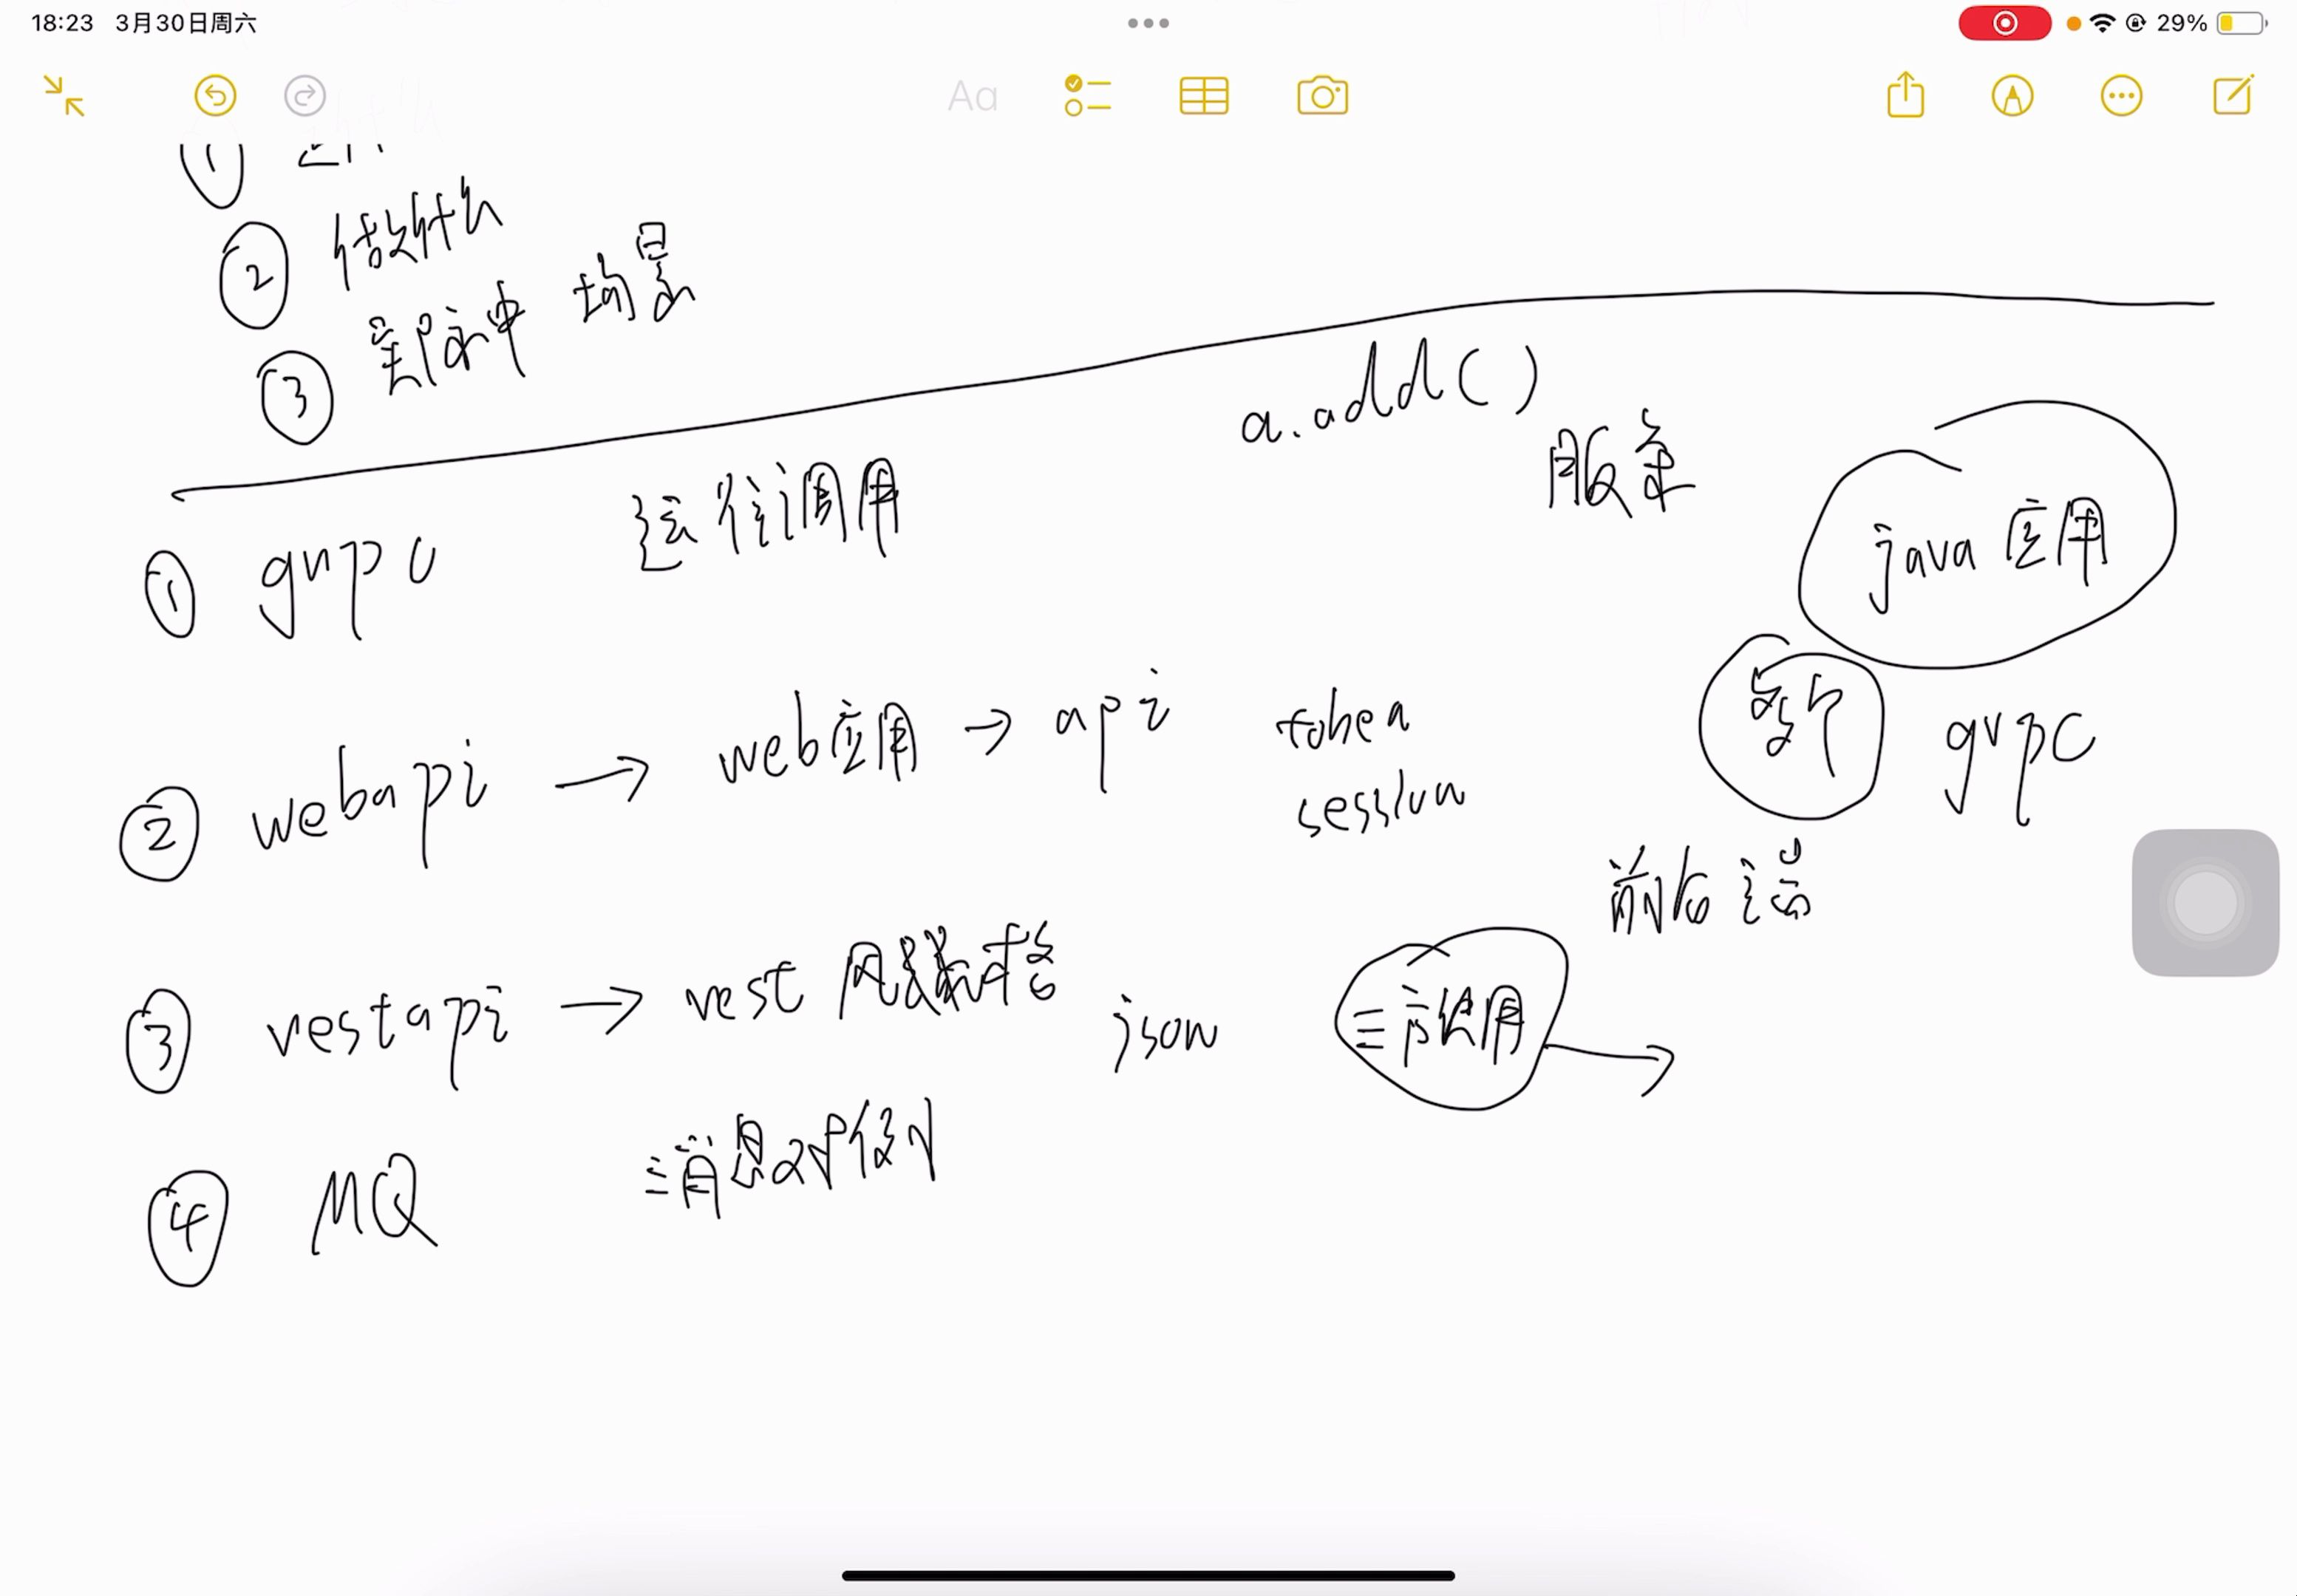 18:23 3月30日周六
29%
Aa
①
② 做什么
③ 实际中 场景
a.add()
服务
① grpc 远程调用
java应用
② webapi → web应用 → api token
session
grpc
前后端
③ restapi → rest 风格 json 三方使用 →
④ MQ 消息队列